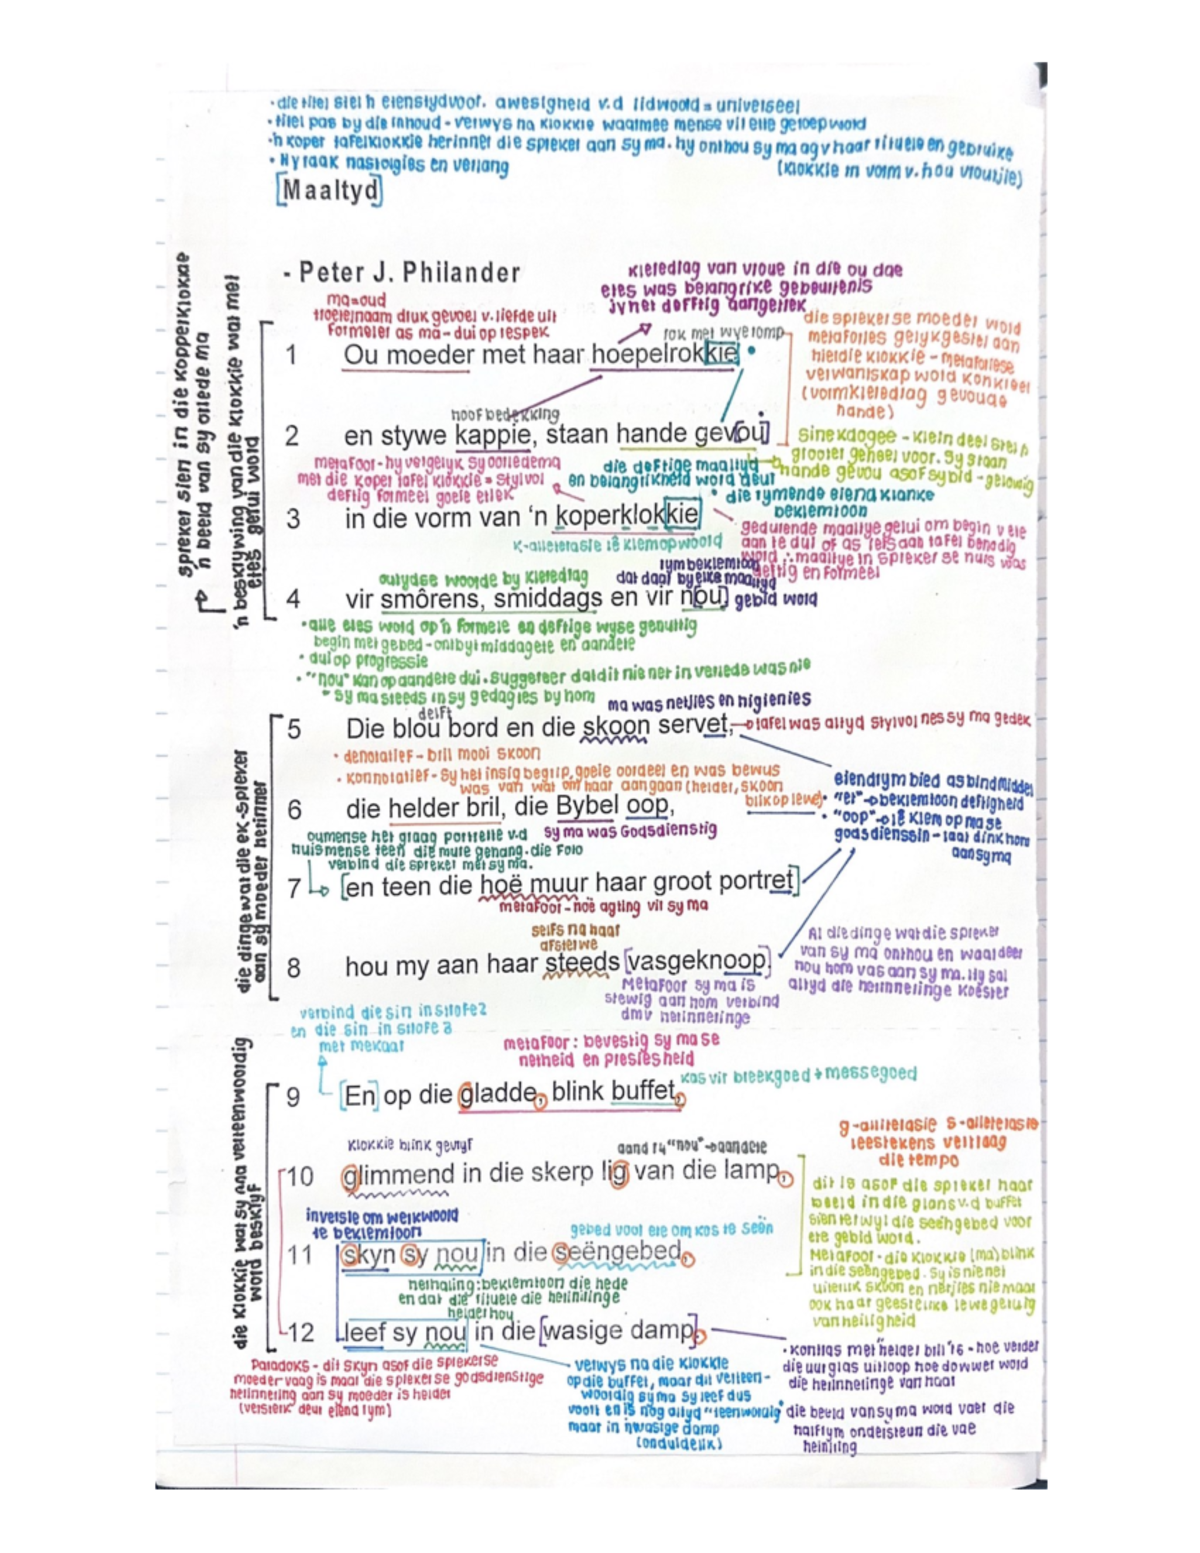 •die titel stel 'n etenstyd voor. awesigheid v.d lidwoord = universeel
•titel pas by die inhoud - verwys na klokkie waarmee mense vir ete geroep word
•'n koper tafelklokkie herinner die spreker aan sy ma. hy onthou sy ma agv haar rituele en gebruike
• Hy raak nastolgies en verlang
(klokkie in vorm v. hou vroutjie)
[Maaltyd]
- Peter J. Philander
kleredrag van vroue in die ou dae
etes was belangrike gebeurtenis
jy net deftig aangetrek
ma=oud
troetelnaam druk gevoel v. liefde uit
formeler as ma - dui op respek
rok met wye romp
1 Ou moeder met haar hoepelrokkie
die spreker se moeder word
metafories gelykgestel aan
hierdie klokkie - metaforiese
verwantskap word konkreet
(vorm kleredrag gevoude
hande)
spreker sien in die koperklokkie
'n beeld van sy oorlede ma
'n beskrywing van die klokkie wat met
etes gelui word
hoofbedekking
2 en stywe kappie, staan hande gevou
sinekdogee - klein deel stel 'n
groter geheel voor. Sy staan
hande gevou asof sy bid - gelowig
metafoor - hy vergelyk sy oorlede ma
met die koper tafel klokkie = stylvol
deftig formeel goeie etiek
die deftige maaltyd
en belangrikheid word deur
• die rymende eiend klanke
beklemtoon
3 in die vorm van 'n koperklokkie
k-alleterasie lê klem op woord
gedurende maaltye gelui om begin v ete
aan te dui of as iets aan tafel benodig
word ∴ maaltye in spreker se huis was
deftig en formeel
outydse woorde by kleredrag
rym beklemtoon
dat daar by elke maaltyd
gebid word
4 vir smôrens, smiddags en vir nou
•alle etes word op 'n formele en deftige wyse genuttig
begin met gebed - ontbyt middagete en aandete
• dui op progressie
• "nou" kan op aandete dui. suggereer dat dit nie net in verlede was nie
sy ma steeds in sy gedagtes by hom
ma was netjies en higienies
delft
5 Die blou bord en die skoon servet,
tafel was altyd stylvol nes sy ma gedek
• denotatief - bril mooi skoon
• konnotatief - sy het insig begrip, goeie oordeel en was bewus
was van wat om haar aangaan (helder, skoon
blik op lewe)
6 die helder bril, die Bybel oop,
eiendrym bied as bindmiddel
• "et" → beklemtoon deftigheid
• "oop" → lê klem op ma se
godsdienssin - laat dink hom
aan sy ma
die dinge wat die ek-spreker
aan sy moeder herinner
oumense het graag portrette v.d
huismense teen die mure gehang. die foto
verbind die spreker met sy ma.
sy ma was Godsdienstig
7 [en teen die hoë muur haar groot portret]
metafoor - hoë agting vir sy ma
selfs na haar
afsterwe
8 hou my aan haar steeds [vasgeknoop]
Metafoor sy ma is
stewig aan hom verbind
dmv herinneringe
Al die dinge wat die spreker
van sy ma onthou en waardeer
hou hom vas aan sy ma. Hy sal
altyd die herinneringe koester
verbind die sin in strofe 2
en die sin in strofe 3
met mekaar
metafoor: bevestig sy ma se
netheid en presiesheid
kas vir breekgoed + messegoed
9 [En] op die gladde, blink buffet,
g-alliterasie s-alleterasie
leestekens vertraag
die tempo
die klokkie wat sy ma verteenwoordig
word beskryf
klokkie blink gevryf
aand r4 "nou" → aandete
10 glimmend in die skerp lig van die lamp,
dit is asof die spreker haar
beeld in die glans v.d buffet
sien terwyl die seëngebed voor
ete gebid word.
Metafoor - die klokkie (ma) blink
in die seëngebed. Sy is nie net
uiterlik skoon en netjies nie maar
ook haar geestelike lewe getuig
van heiligheid
inversie om werkwoord
te beklemtoon
gebed voor ete om kos te seën
11 skyn sy nou in die seëngebed,
herhaling: beklemtoon die hede
en dat die rituele die herinneringe
helder hou
12 leef sy nou in die [wasige damp].
Paradoks - dit skyn asof die spreker se
moeder vaag is maar die spreker se godsdienstige
herinnering aan sy moeder is helder
(versterk deur eiend rym)
verwys na die klokkie
op die buffet, maar dit verteen-
woordig sy ma sy leef dus
voort en is nog altyd "teenwordig"
maar in 'n wasige damp
(onduidelik)
• kontras met helder bril r6 - hoe verder
die uurglas uitloop hoe dowwer word
die herinneringe van haar
• die beeld van sy ma word vaer die
halfrym ondersteun die vae
herinring